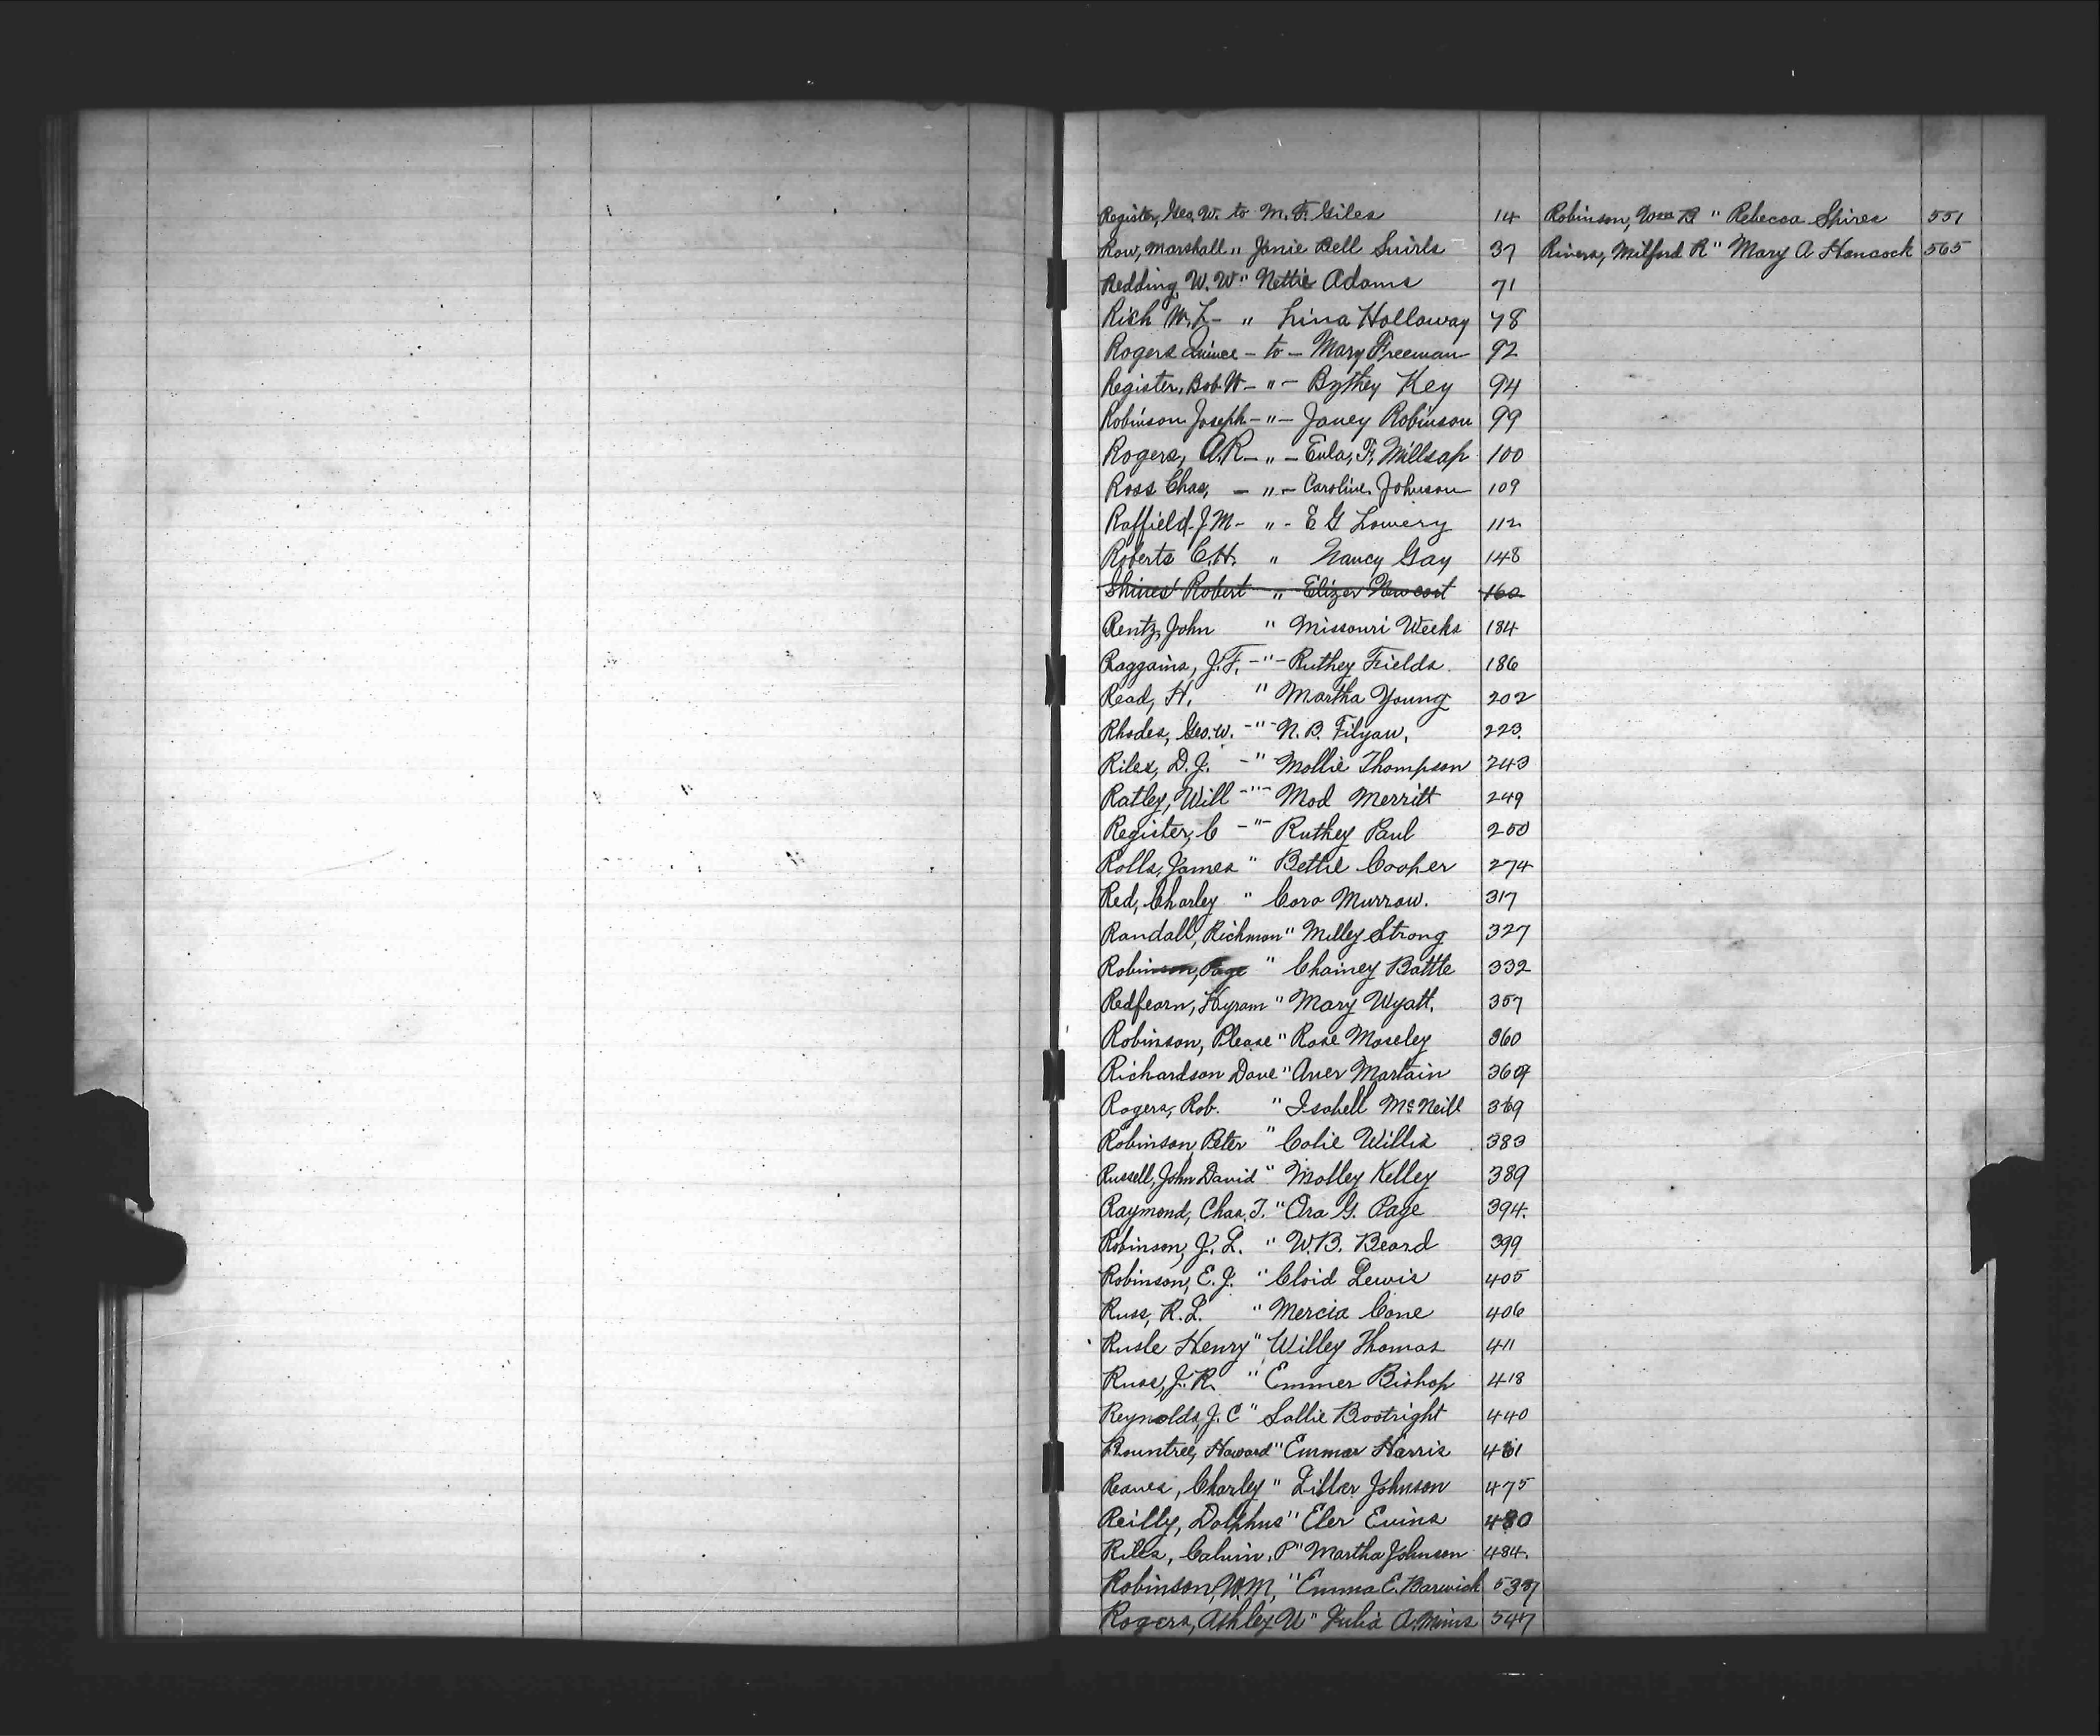 Register, Geo. W. to M. F. Giles 14
Row, Marshall " Janie Bell Suirls 37
Redding, W. W. " Nettie Adams 71
Rich W. L- " Lina Holloway 78
Rogers Quince - to - Mary Freeman 92
Register, Bob W- " - Bythey Key 94
Robinson Joseph - " - Janey Robinson 99
Rogers, A.R - " - Eula, F, Millsap 100
Ross Chas, - " - Caroline Johnson 109
Raffield J M - " - E G Lowery 112
Roberts C.H. " Nancy Gay 148
Shines Robert " Elizer 160
Rentz, John " Missouri Weeks 184
Raggains, J. F. - " - Ruthey Fields. 186
Read, H. " Martha Young 202
Rhodes, Geo. W. - " - N. B. Filyaw, 223.
Riles, D. J. - " Mollie Thompson 243
Ratley, Will - " - Mod Merritt 249
Register, C - " - Ruthey Paul 250
Rolls, James " Bettie Cooper 274
Red, Charley " Cora Murrow. 317
Randall, Richmon " Milley Strong 327
Robinson, Page " Chainey Battle 332
Redfearn, Hyram " Mary Wyatt. 357
Robinson, Please " Rose Moseley 360
Richardson Dave " Aver Martain
Rogers, Rob. " Isabell McNeill 369
Robinson, Peter " Colie Willis 383
Russell, John David " Molley Kelley 389
Raymond, Chas. T. " Ora G. Page 394.
Robinson, J. L. " W. B. Beard 399
Robinson, E. J. " Cloid Lewis 405
Russ, R. L. " Mercia Cone 406
Rusle Henry " Willey Thomas 411
Russ, J. R. " Emmer Bishop 418
Reynolds, J. C " Sallie Bootright 440
Rountree, Howard " Emmar Harris 461
Reaves, Charley " Liller Johnson 475
Reilly, Dolphus " Eler Evins 480
Riles, Calvin, P " Martha Johnson 484.
Robinson, W. M, " Emma E. Barwick 537
Rogers, Ashley W " Julia A. Mims 547
Robinson, Wm B " Rebecca Shires 551
Rivers, Milford R " Mary A Hancock 565